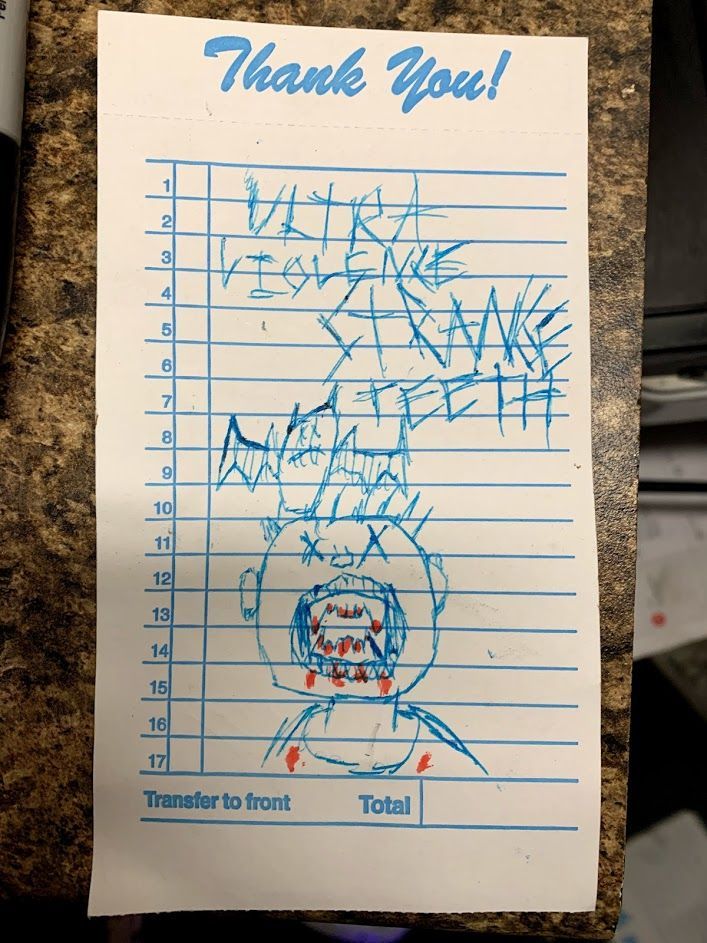 Thank You!
1
ULTRA
2
3
VIOLENCE
4
STRANGE
5
6
TEETH
7
8
9
10
11
12
13
14
15
16
17
Transfer to front Total